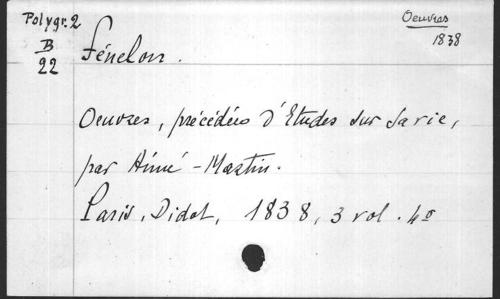 Polygr. 2
B
22
Oeuvres
1838
Fénelon.
Oeuvres, précédées d'Etudes sur sa vie,
par Aimé-Martin.
Paris, Didot, 1838, 3 vol. 4º